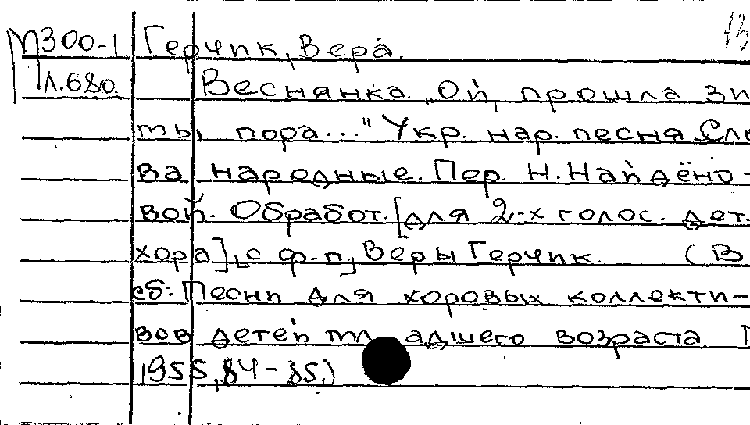 М300-1 Герчик, Вера.
Л.680. Веснянка „Ой, прошла зи-
ты пора..." Укр. нар. песня. Сло-
ва народные. Пер. Н. Найдёно-
вой. Обработ. [для 2-х голос. дет.
хора], с ф.-п., Веры Герчик. (В
сб: Песни для хоровых коллекти-
вов детей младшего возраста.
1955, 84-85.)